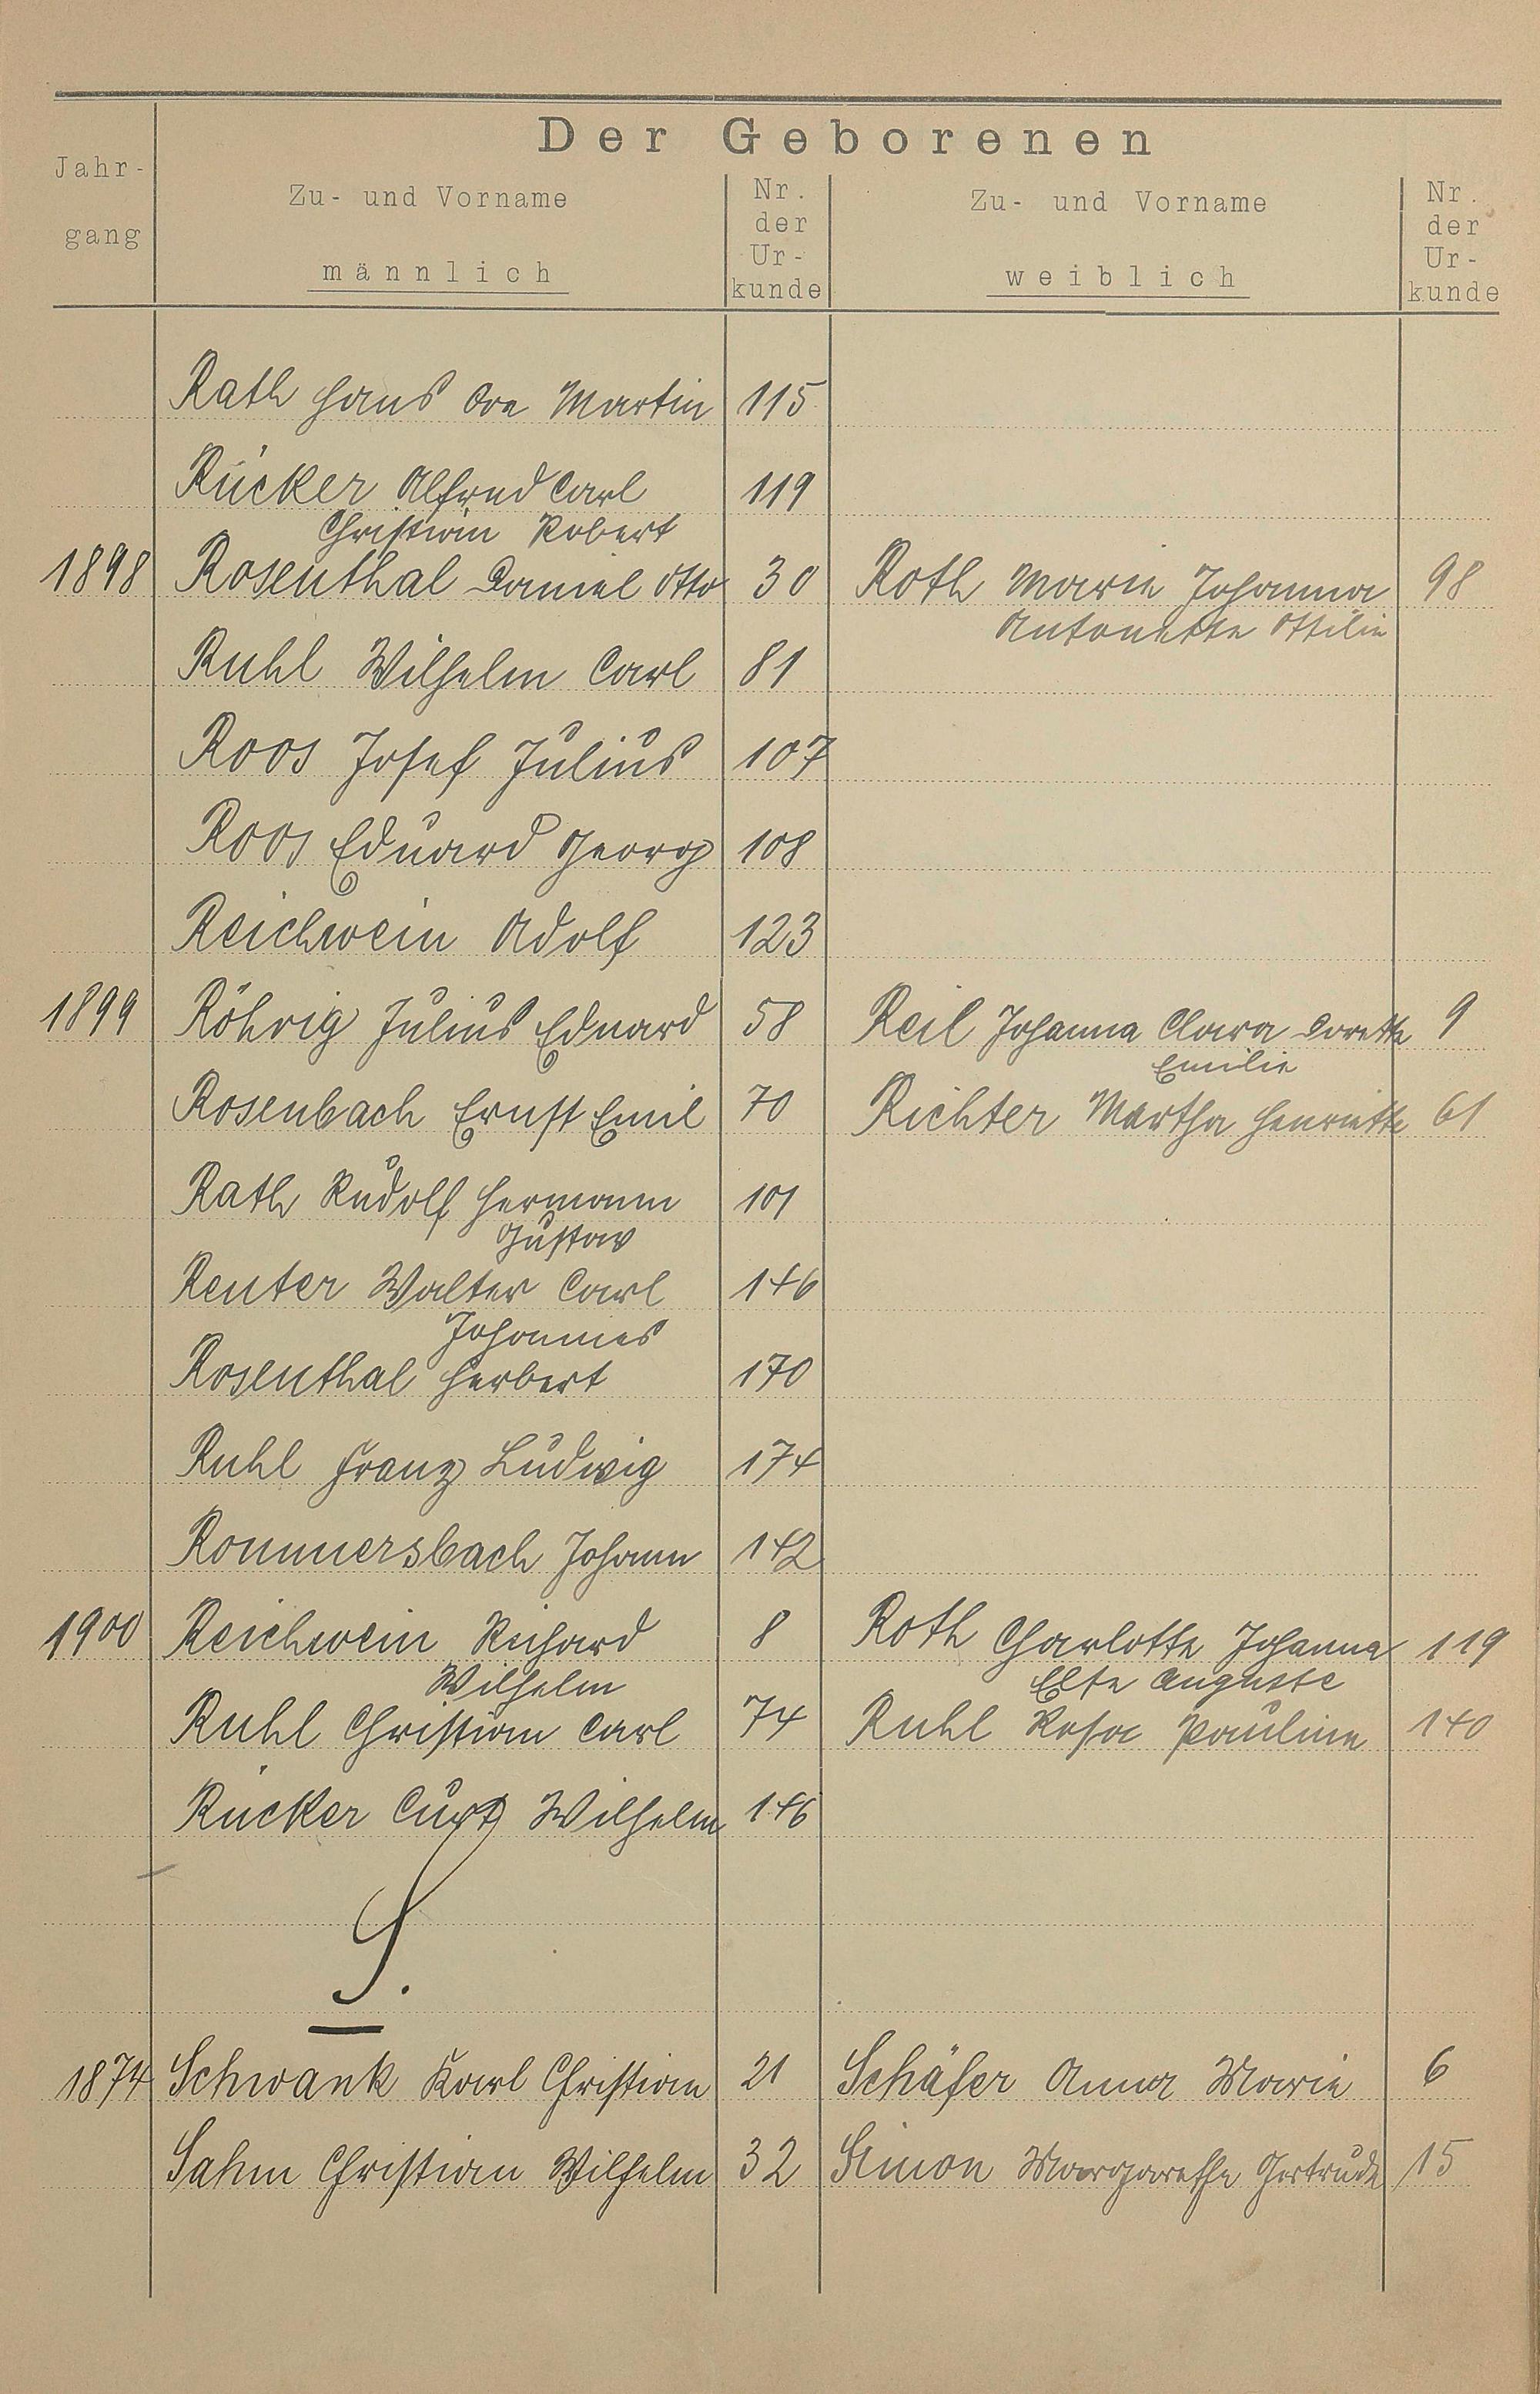 Der Geborenen
Jahr-
gang
Zu- und Vorname
männlich
Nr.
der
Ur-
kunde
Zu- und Vorname
weiblich
Nr.
der
Ur-
kunde
Rath Hans Martin 115
Rücker Alfred Carl 119
Christian Robert
1898 Rosenthal Daniel Otto 30 Roth Marie Johanna 98
Antonette Ottilie
Ruhl Wilhelm Carl 81
Roos Josef Julius 107
Roos Eduard Georg 108
Reichwein Adolf 123
1899 Röhrig Julius Eduard 58 Reil Johanna Clara Dorette 9
Emilie
Rosenbach Ernst Emil 70 Richter Martha Henriette 61
Rath Rudolf Hermann 101
Gustav
Reuter Walter Carl 146
Johannes
Rosenthal Herbert 170
Ruhl Franz Ludwig 174
Rommersbach Johann 142
1900 Reichwein Richard 8 Roth Charlotte Johanna 119
Wilhelm Else Auguste
Ruhl Christian Carl 74 Ruhl Rosa Pauline 140
Rücker Curt Wilhelm 146
S.
1874 Schwank Karl Christian 21 Schäfer Anna Marie 6
Sahm Christian Wilhelm 32 Simon Margarethe Gertrude 15